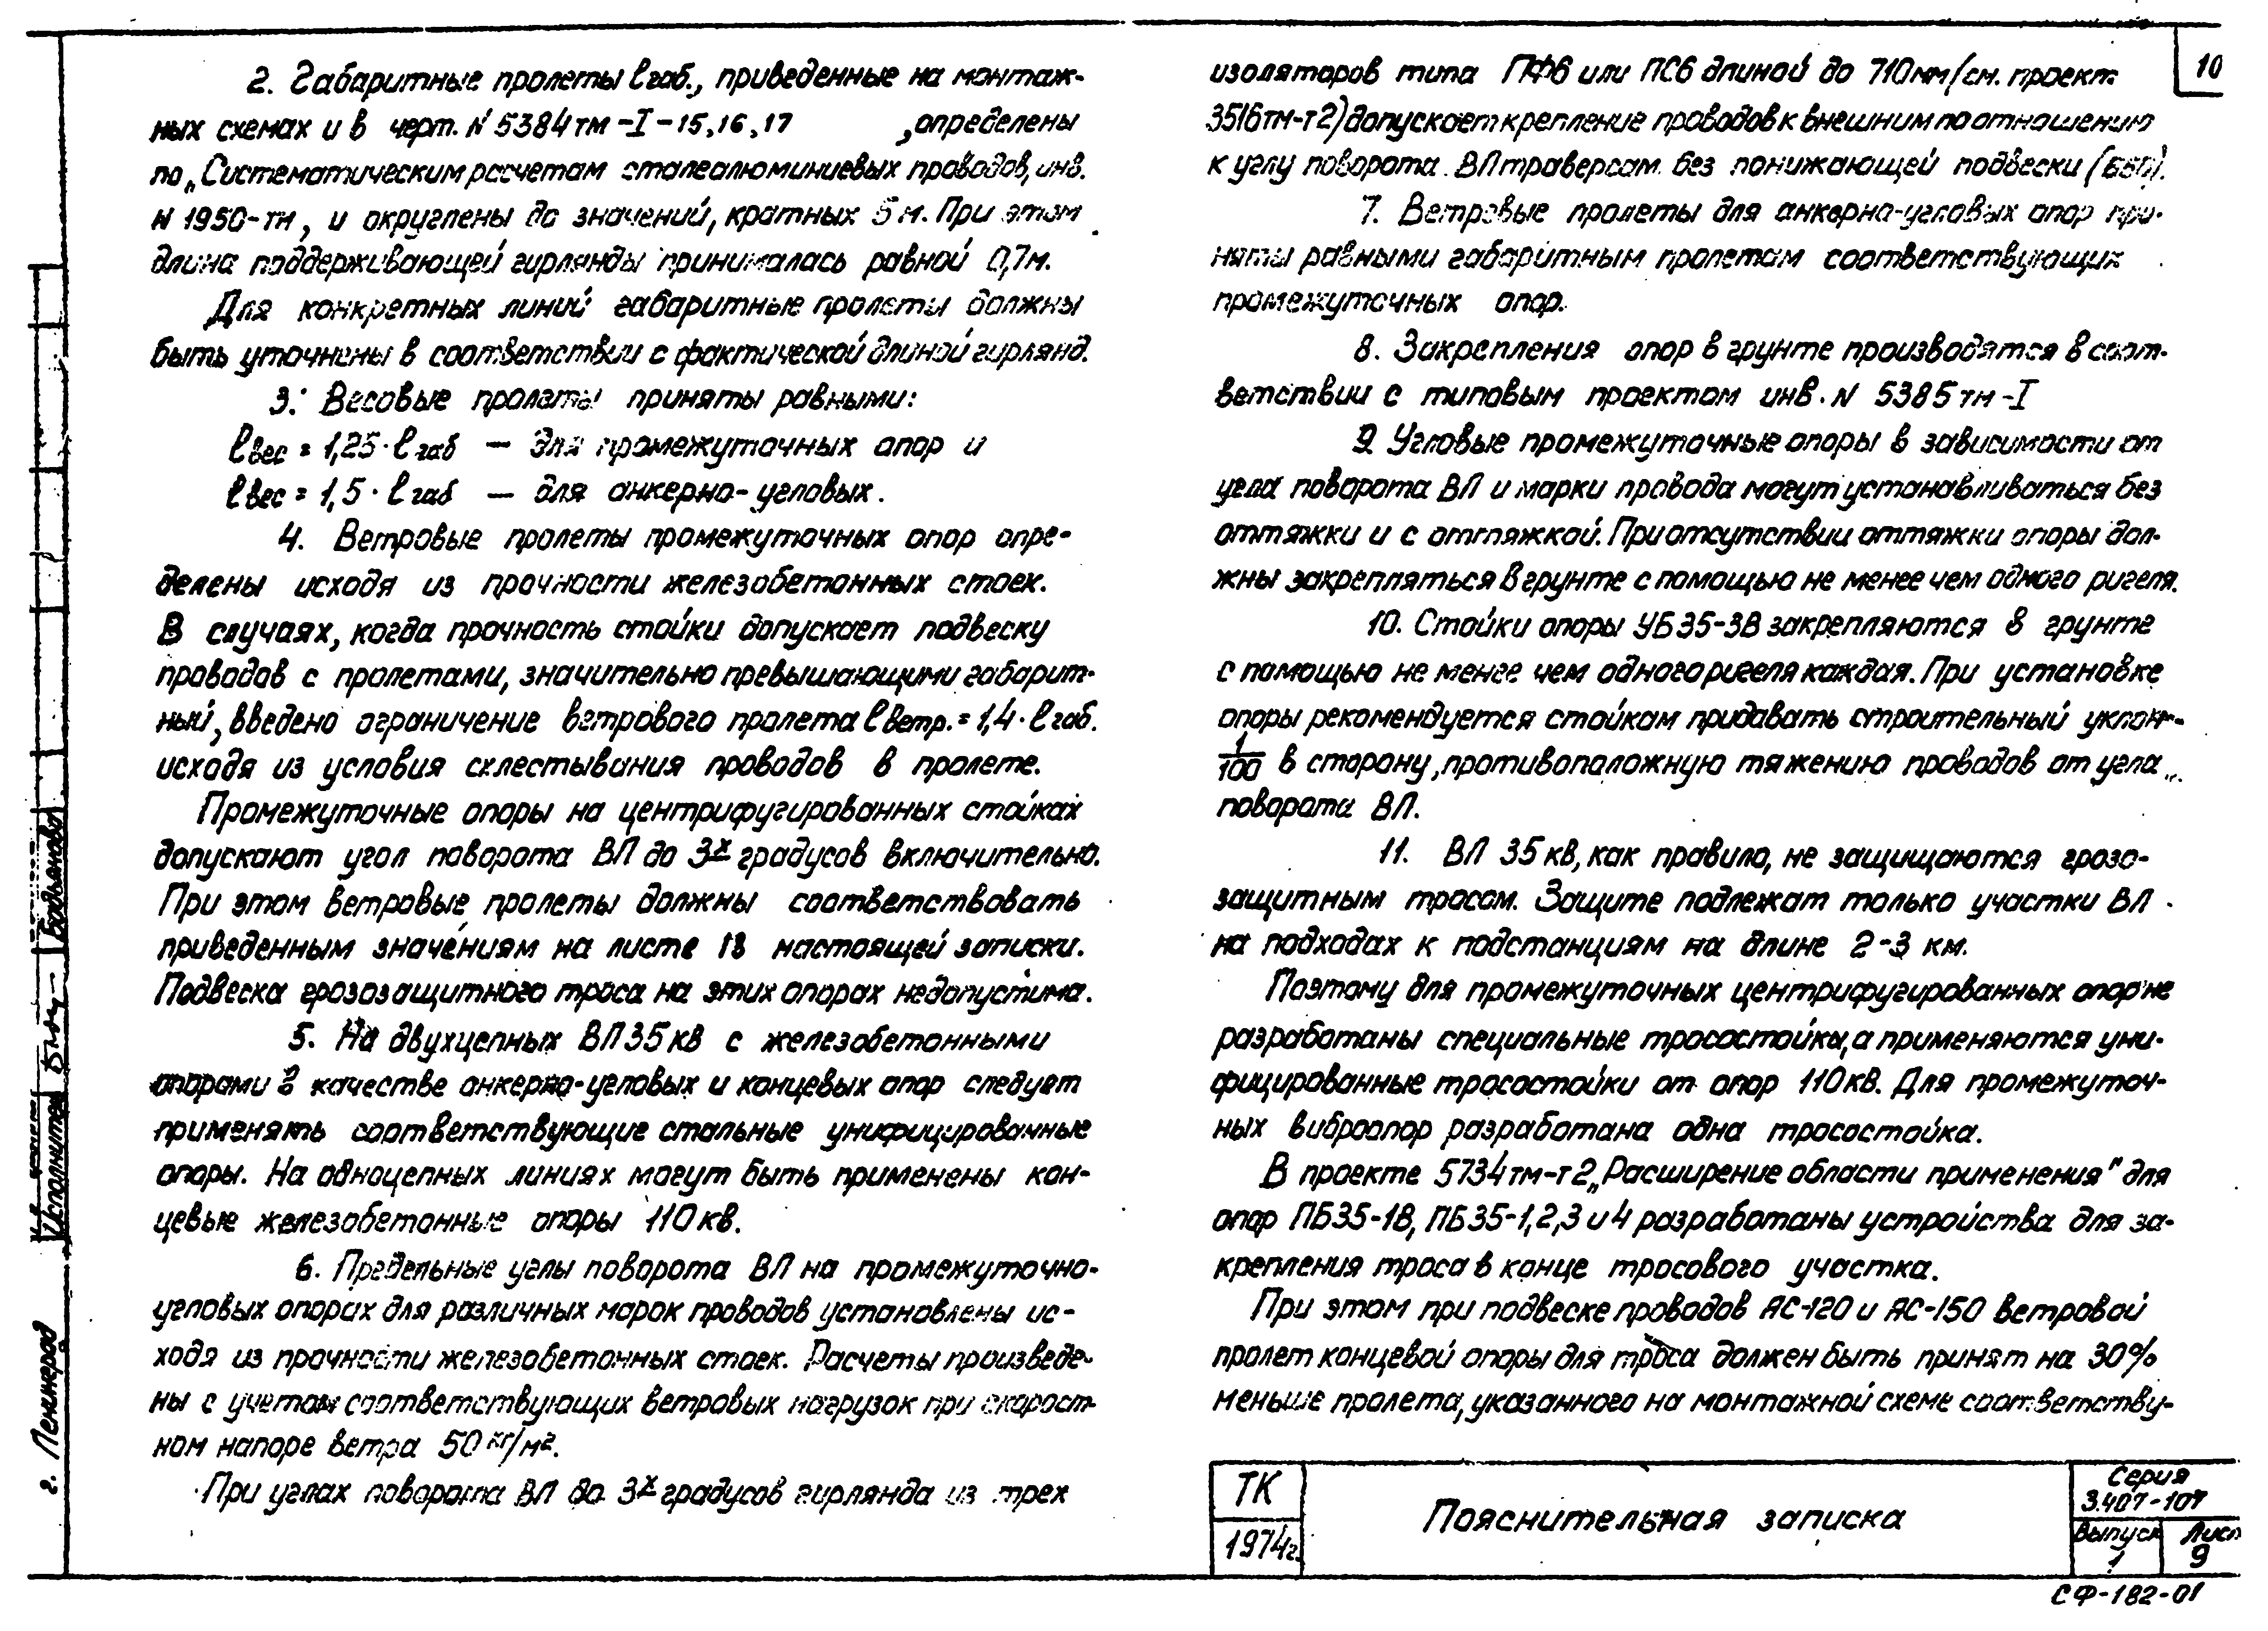 2. Габаритные пролеты ℓгаб., приведенные на монтаж-
ных схемах и в черт. № 5384тм-I-15,16,17 ,определены
по „Систематическим расчетам сталеалюминиевых проводов, инв.
№ 1950-тм, и округлены до значений, кратных 5 м. При этом
длина поддерживающей гирлянды принималась равной 0,7м.
Для конкретных линий габаритные пролеты должны
быть уточнены в соответствии с фактической длиной гирлянд.
3. Весовые пролеты приняты равными:
ℓвес = 1,25·ℓгаб — для промежуточных опор и
ℓвес = 1,5·ℓгаб — для анкерно-угловых.
4. Ветровые пролеты промежуточных опор опре-
делены исходя из прочности железобетонных стоек.
В случаях, когда прочность стойки допускает подвеску
проводов с пролетами, значительно превышающими габарит-
ный, введено ограничение ветрового пролета ℓветр. = 1,4·ℓгаб.
исходя из условия схлестывания проводов в пролете.
Промежуточные опоры на центрифугированных стойках
допускают угол поворота ВЛ до 3х градусов включительно.
При этом ветровые пролеты должны соответствовать
приведенным значениям на листе 18 настоящей записки.
Подвеска грозозащитного троса на этих опорах недопустима.
5. На двухцепных ВЛ 35 кв с железобетонными
опорами в качестве анкерно-угловых и концевых опор следует
применять соответствующие стальные унифицированные
опоры. На одноцепных линиях могут быть применены кон-
цевые железобетонные опоры 110 кв.
6. Предельные углы поворота ВЛ на промежуточно-
угловых опорах для различных марок проводов установлены ис-
ходя из прочности железобетонных стоек. Расчеты произведе-
ны с учетом соответствующих ветровых нагрузок при скорост-
ном напоре ветра 50 кг/м².
При углах поворота ВЛ до 3х градусов гирлянда из трех
изоляторов типа ПФ6 или ПС6 длиной до 710 мм/см. проект
3516тм-т2) допускает крепление проводов к внешним по отношению
к углу поворота ВЛ траверсам без понижающей подвески
7. Ветровые пролеты для анкерно-угловых опор при-
няты равными габаритным пролетам соответствующих
промежуточных опор.
8. Закрепления опор в грунте производятся в соот-
ветствии с типовым проектом инв. № 5385тм-I
9. Угловые промежуточные опоры в зависимости от
угла поворота ВЛ и марки провода могут устанавливаться без
оттяжки и с оттяжкой. При отсутствии оттяжки опоры дол-
жны закрепляться в грунте с помощью не менее чем одного ригеля.
10. Стойки опоры УБ35-3В закрепляются в грунте
с помощью не менее чем одного ригеля каждая. При установке
опоры рекомендуется стойкам придавать строительный уклон
1/100 в сторону, противоположную тяжению проводов от угла
поворота ВЛ.
11. ВЛ 35 кв, как правило, не защищаются грозо-
защитным тросом. Защите подлежат только участки ВЛ
на подходах к подстанциям на длине 2-3 км.
Поэтому для промежуточных центрифугированных опор не
разработаны специальные тросостойки, а применяются уни-
фицированные тросостойки от опор 110 кв. Для промежуточ-
ных виброопор разработана одна тросостойка.
В проекте 5734тм-т2 „Расширение области применения" для
опор ПБ35-1В, ПБ35-1,2,3 и 4 разработаны устройства для за-
крепления троса в конце тросового участка.
При этом при подвеске проводов АС-120 и АС-150 ветровой
пролет концевой опоры для троса должен быть принят на 30%
меньше пролета, указанного на монтажной схеме соответству-
10
ТК
1974г.
Пояснительная записка
Серия
3.407-107
Выпуск
1
Лист
9
СФ-182-01
Исполнител
г. Ленинград